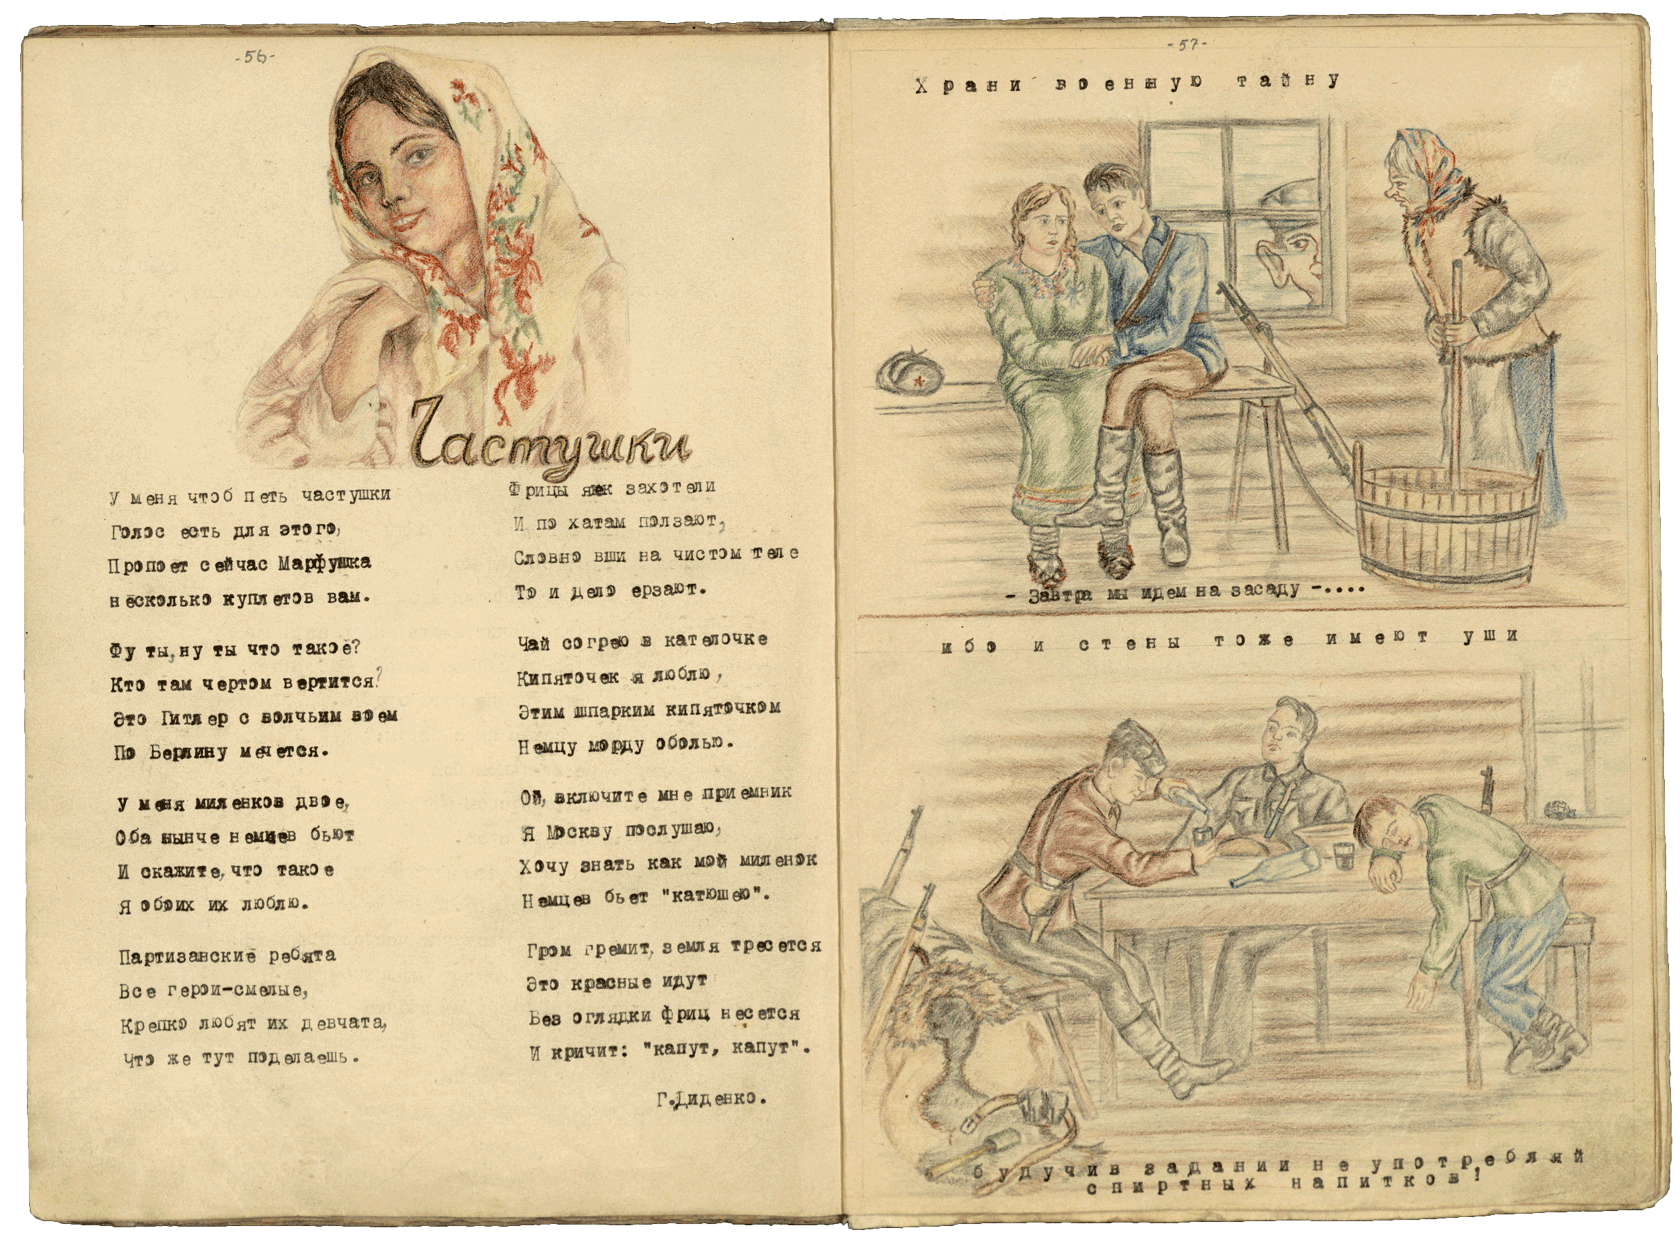 -56-
Частушки
У меня чтоб петь частушки
Голос есть для этого,
Пропоет сейчас Марфушка
несколько куплетов вам.
Фу ты, ну ты что такое?
Кто там чертом вертится?
Это Гитлер с волчьим воем
По Берлину мечется.
У меня миленков двое,
Оба нынче немцев бьют
И скажите, что такое
Я обоих их люблю.
Партизанские ребята
Все герои-смелые,
Крепко любят их девчата,
Что же тут поделаешь.
Фрицы як захотели
И по хатам ползают,
Словно вши на чистом теле
То и дело ерзают.
Чай согрею в кателочке
Кипяточек я люблю,
Этим шпарким кипяточком
Немцу морду оболью.
Ой, включите мне приемник
Я Москву послушаю,
Хочу знать как мой миленок
Немцев бьет "катюшею".
Гром гремит, земля тресется
Это красные идут
Без оглядки фриц несется
И кричит: "капут, капут".
Г.Диденко.
-57-
Храни военную тайну
- Завтра мы идем на засаду -....
ибо и стены тоже имеют уши
будучи в задании не употребляй
спиртных напитков!